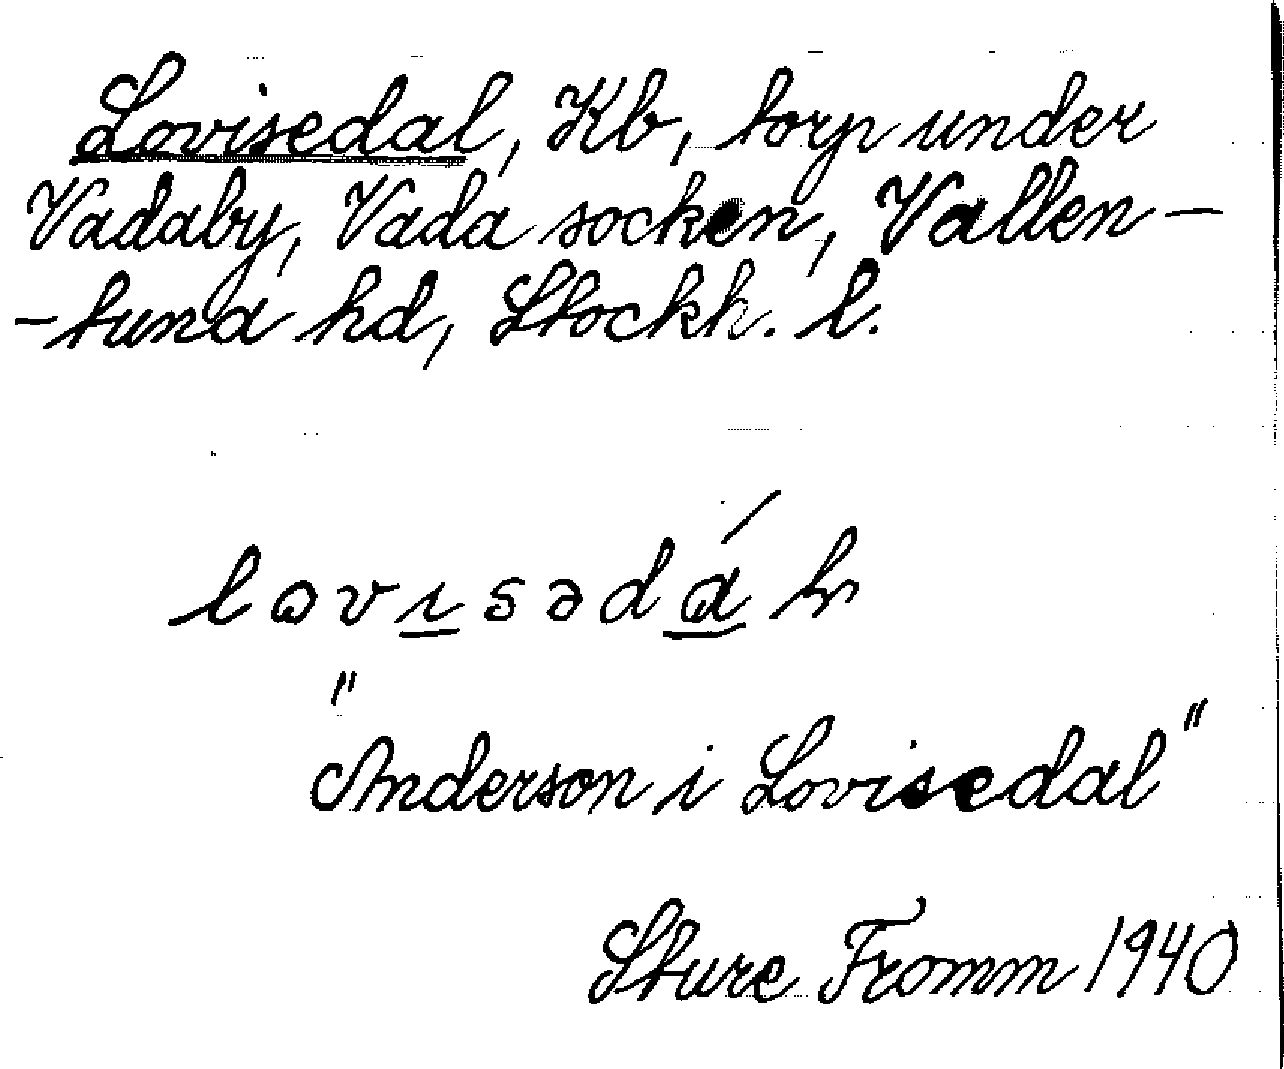 Lovisedal, Kb, torp under
Vadaby, Vada socken, Vallen-
-tuna hd, Stockh. l.
"Anderson i Lovisedal"
Sture Fromm 1940